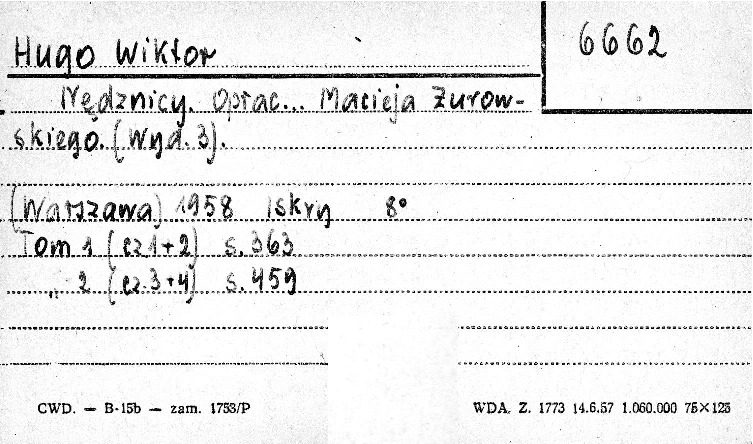 6662
Hugo Wiktor
Nędznicy. Oprac... Macieja Żurow-
skiego. (Wyd. 3).
(Warszawa) 1958 Iskry 8°
Tom 1 (cz 1+2) s. 363
„ 2 (cz. 3+4) s. 459
CWD. — B-15b — zam. 1753/P
WDA. Z. 1773 14.6.57 1.060.000 75×125